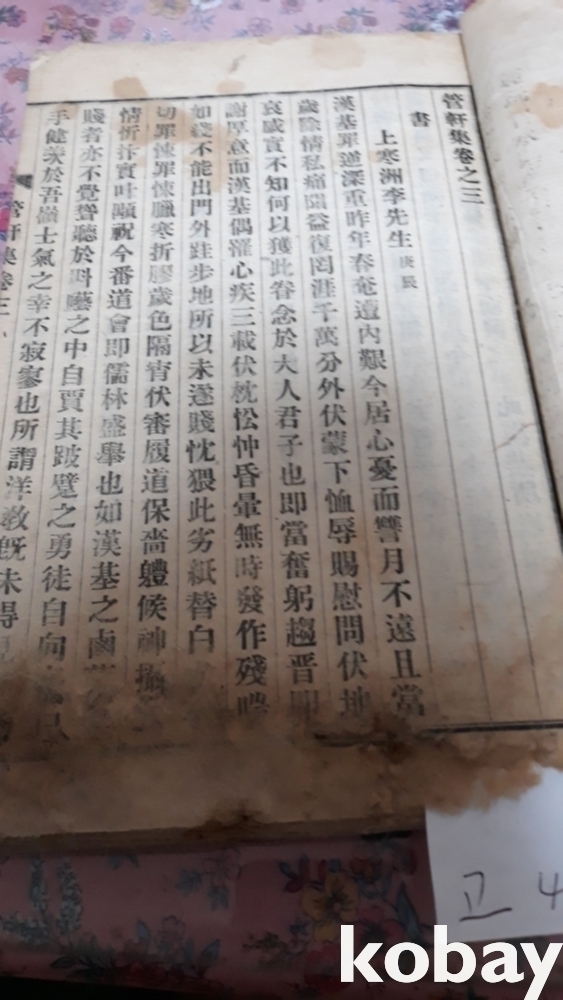 管軒集卷之三
書
上寒洲李先生 庚辰
漢基罪逆深重昨年春奄遭內艱今居心憂而讐月不遠且當
歲除情私痛隕益復罔涯千萬分外伏蒙下恤辱賜慰問伏地
哀感實不知何以獲此眷念於大人君子也即當奮躬趨晋即
謝厚意而漢基偶罹心疾三載伏枕忪忡昏暈無時發作殘
如綫不能出門外跬步地所以未遂賤忱猥此劣紙替白
切罪悚罪悚臘寒折膠歲色隔宵伏審履道保嗇軆候神
情忻抃實叶顒祝今番道會即儒林盛擧也如漢基之鹵
賤者亦不覺聳聽於
藝之中自賈其跛躄之勇徒自向
手健羨於吾嶺士氣之幸不寂寥也所謂洋敎旣未得
管軒集卷之三
고 4
kobay